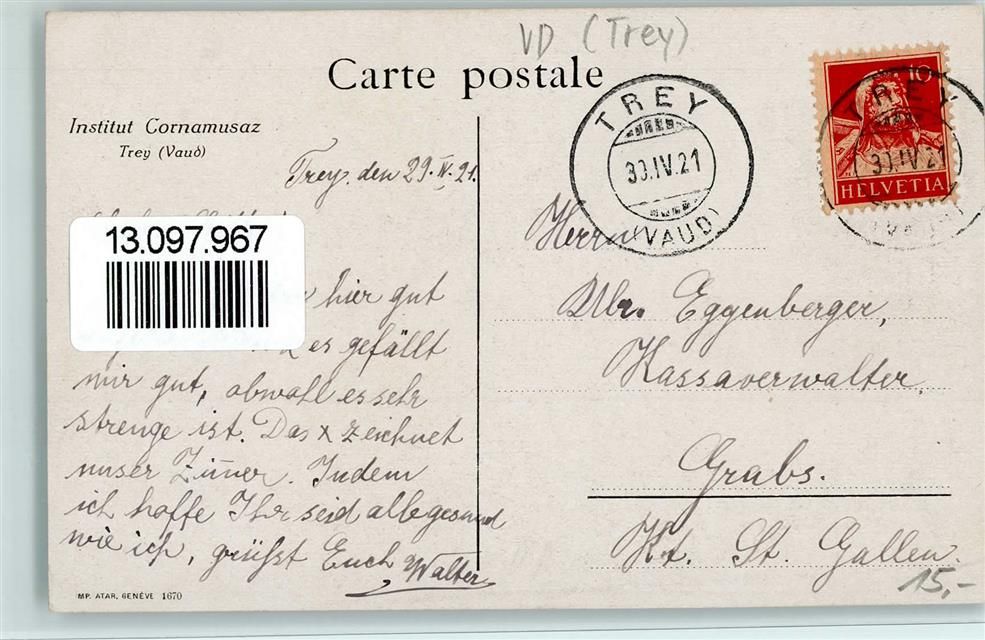 VD (Trey)
Carte postale
Institut Cornamusaz
Trey (Vaud)
Trey, den 29. IV. 21.
13.097.967
hier gut
es gefällt
mir gut, obwohl es sehr
strenge ist. Das x zeichnet
unser Zimmer. Indem
ich hoffe Ihr seid alle gesund
wie ich, grüsst Euch Walter
MP. ATAR, GENÈVE 1670
TREY
30.IV.21
(VAUD)
10
HELVETIA
TREY
30.IV.21
(VAUD)
Herrn
Ulr. Eggenberger,
Kassaverwalter
Grabs.
Kt. St. Gallen.
15,-